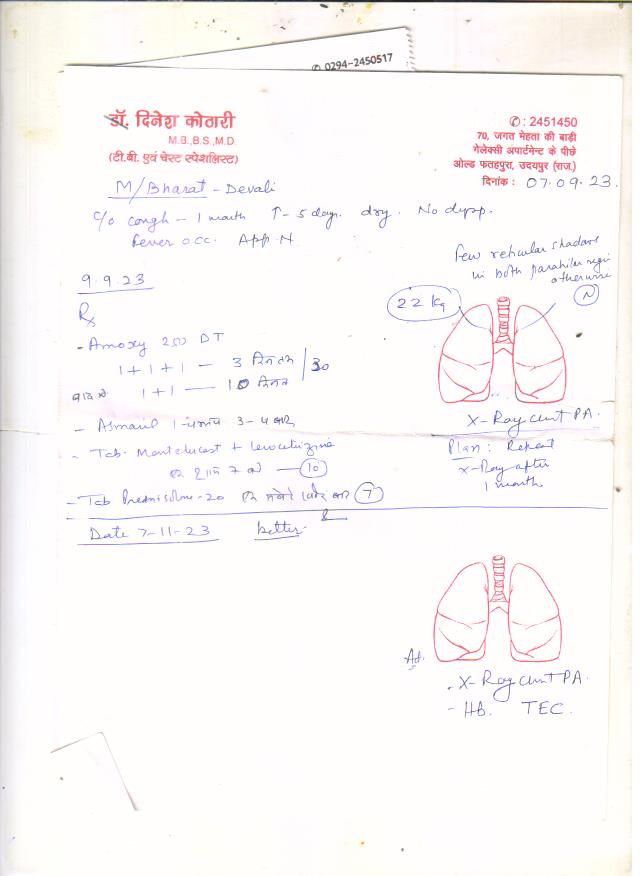 ✆ 0294-2450517
डॉ. दिनेश कोठारी
M.B.,B.S.,M.D
(टी.बी. एवं चेस्ट स्पेशलिस्ट)
✆ : 2451450
70, जगत मेहता की बाड़ी
गेलेक्सी अपार्टमेन्ट के पीछे
ओल्ड फतहपुरा, उदयपुर (राज.)
दिनांक : 07.09.23.
M/Bharat - Devali
c/o cough - 1 month ↑- 5 day. dry. No dysp.
fever occ. App. N
few reticular shadows
in both parahilar region
otherwise
N
9.9.23
22 Kg
Rx
- Amoxy 250 DT
1+1+1 — 3 दिन तक / 30
1+1 — 10 दिन
X-Ray Chest PA.
Plan: Repeat
X-Ray after
1 month
- 1 3-4 बार
- Tab. Montelucast + Levocetrizine
7 — 10
- Tab Prednisolone - 20 7
Date 7-11-23 better.
Ad.
- X-Ray Chest PA.
- HB. TEC.